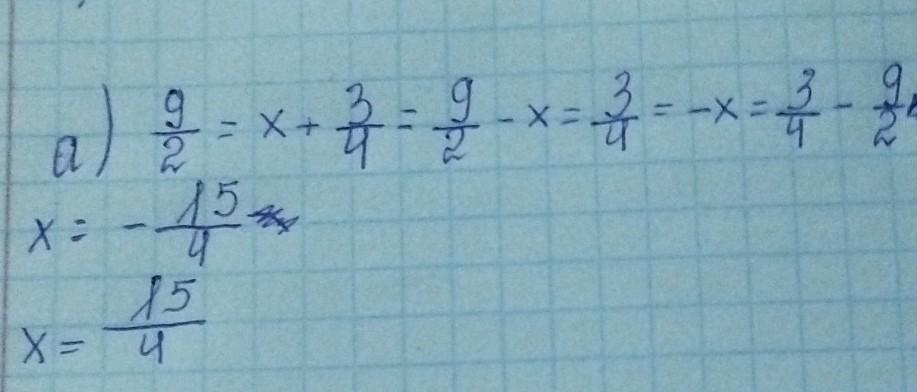 a) 9/2 = x + 3/4 = 9/2 - x = 3/4 = -x = 3/4 - 9/2
x = - 15/4
x = 15/4